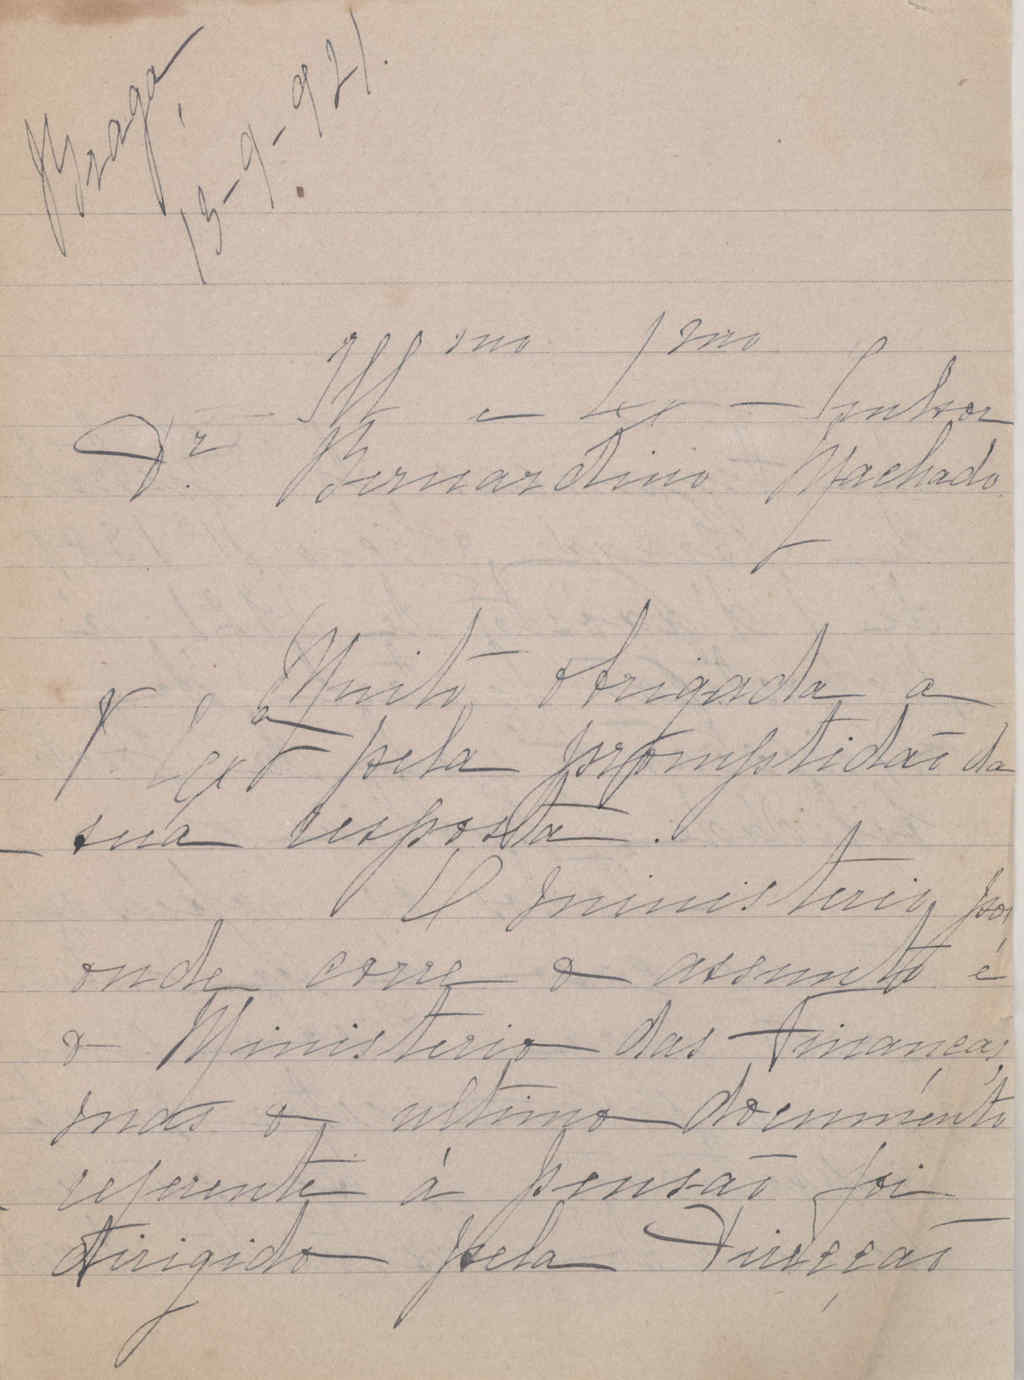 Braga,
13-9-921.
Ill.mo e Ex.mo Senhor
Dr. Bernardino Machado
Muito obrigada a
V. Ex.a pela promptidão da
sua resposta.
O ministerio por
onde corre o assunto é
o Ministerio das Finanças,
mas o ultimo documento
referente á pensão foi
dirigido pela Direcção